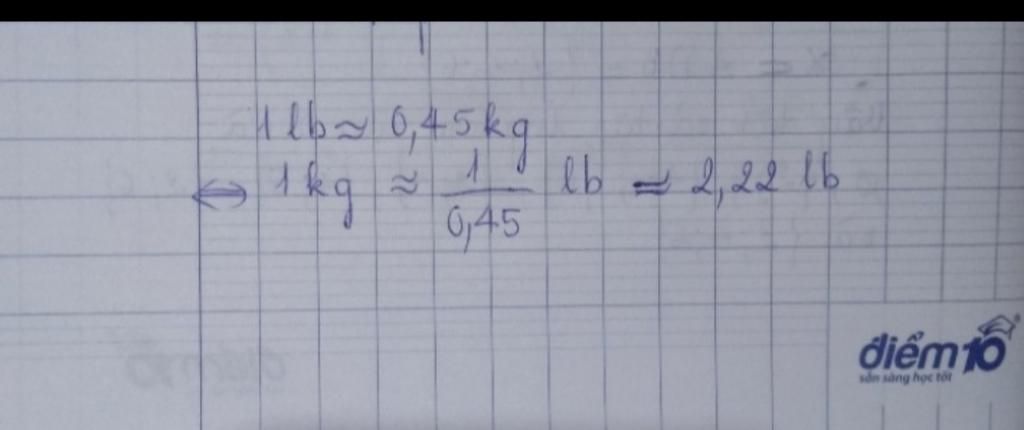 1 lb ≈ 0,45 kg
⇔ 1 kg ≈ 1/0,45 lb = 2,22 lb
điểm10
sẵn sàng học tốt